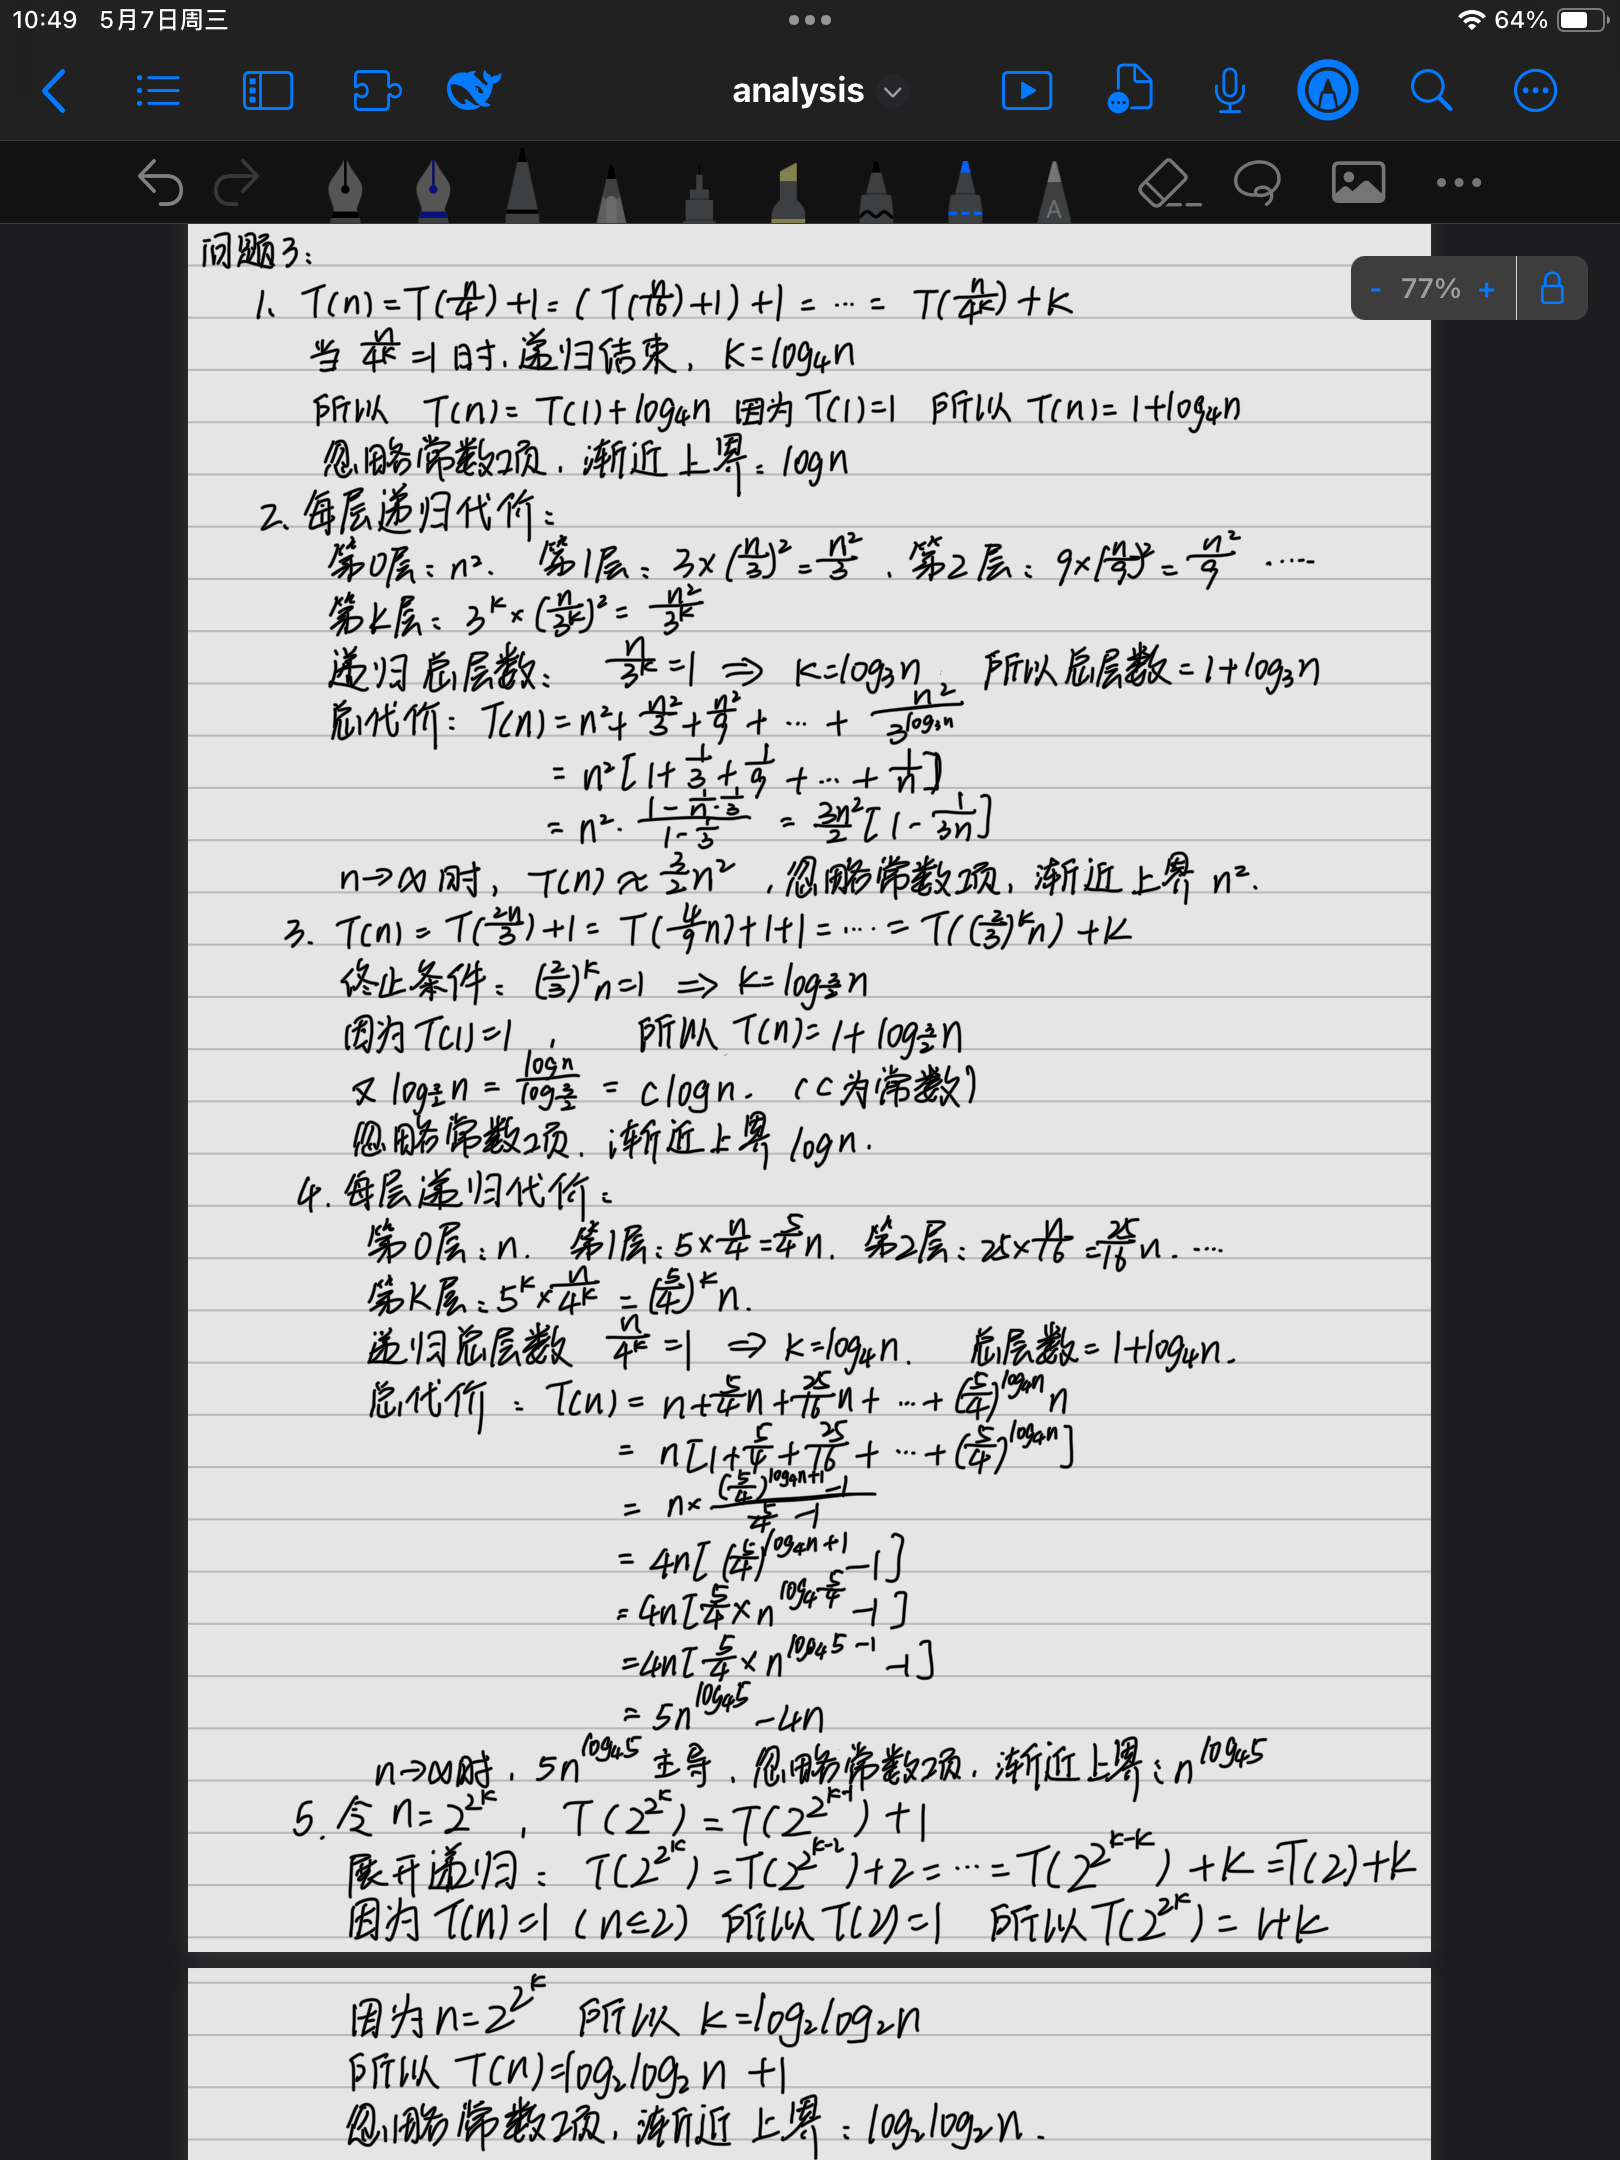 10:49 5月7日周三
64%
analysis
A
- 77% +
问题3:
1. T(n)=T(n/4)+1=(T(n/16)+1)+1=…=T(n/4^k)+k
当 n/4^k=1时,递归结束, k=log₄n
所以 T(n)=T(1)+log₄n 因为T(1)=1 所以T(n)=1+log₄n
忽略常数项,渐近上界:logn
2. 每层递归代价:
第0层:n². 第1层:3×(n/3)²=n²/3 . 第2层:9×(n/9)²=n²/9 ……
第k层:3^k×(n/3^k)²=n²/3^k
递归总层数: n/3^k=1 ⇒ k=log₃n 所以总层数=1+log₃n
总代价:T(n)=n²+n²/3+n²/9+…+n²/3^(log₃n)
=n²[1+1/3+1/9+…+1/n]
=n²·(1-1/n·1/3)/(1-1/3)=3n²/2[1-1/3n]
n→∞时,T(n)≈3/2n²,忽略常数项,渐近上界n².
3. T(n)=T(2n/3)+1=T(4/9n)+1+1=…=T((2/3)^k n)+k
终止条件:(2/3)^k n=1 ⇒ k=log_(3/2)n
因为T(1)=1, 所以T(n)=1+log_(3/2)n
又log_(3/2)n=logn/log(3/2)=clogn. (c为常数)
忽略常数项,渐近上界logn.
4. 每层递归代价:
第0层:n. 第1层:5×n/4=5/4n. 第2层:25×n/16=25/16n. …
第k层:5^k×n/4^k=(5/4)^k n.
递归总层数 n/4^k=1 ⇒ k=log₄n. 总层数=1+log₄n.
总代价:T(n)=n+5/4n+25/16n+…+(5/4)^(log₄n) n
=n[1+5/4+25/16+…+(5/4)^(log₄n)]
=n×((5/4)^(log₄n+1)-1)/(5/4-1)
=4n[(5/4)^(log₄n+1)-1]
=4n[5/4×n^(log₄5/4)-1]
=4n[5/4×n^(log₄5-1)-1]
=5n^(log₄5)-4n
n→∞时,5n^(log₄5)主导,忽略常数项,渐近上界:n^(log₄5)
5. 令n=2^(2^k),T(2^(2^k))=T(2^(2^(k-1)))+1
展开递归:T(2^(2^k))=T(2^(2^(k-2)))+2=…=T(2^(2^(k-k)))+k=T(2)+k
因为T(n)=1(n≤2) 所以T(2)=1 所以T(2^(2^k))=1+k
因为n=2^(2^k) 所以k=log₂log₂n
所以T(n)=log₂log₂n+1
忽略常数项,渐近上界:log₂log₂n.